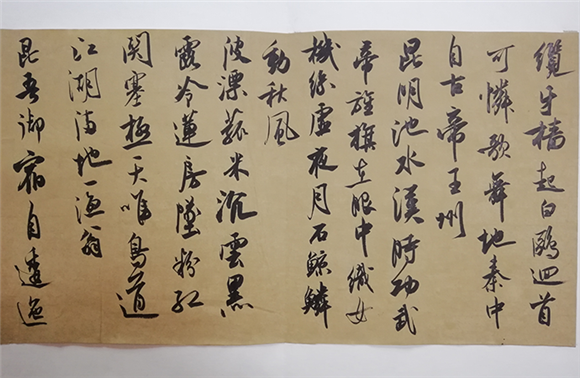 纜牙檣起白鷗迴首
可憐歌舞地秦中
自古帝王州
昆明池水漢時功武
帝旌旗在眼中織女
機絲虛夜月石鯨鱗
動秋風
波漂菰米沉雲黑
露冷蓮房墜粉紅
關塞極天唯鳥道
江湖滿地一漁翁
昆吾御宿自逶迤